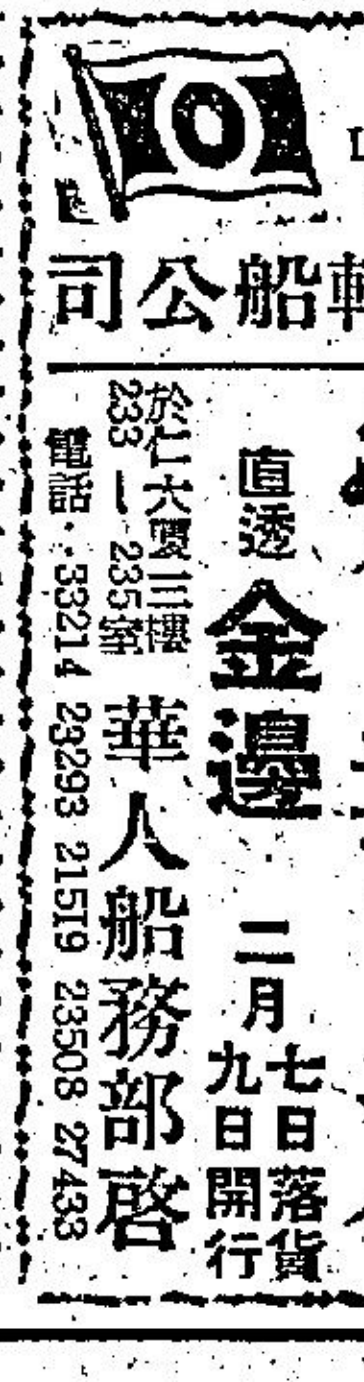 O
船公司
直透 金邊 二月
七日落貨
九日開行
於仁大厦三樓
233—235室
華人船務部啓
電話：33214 23293 21519 23508 27433